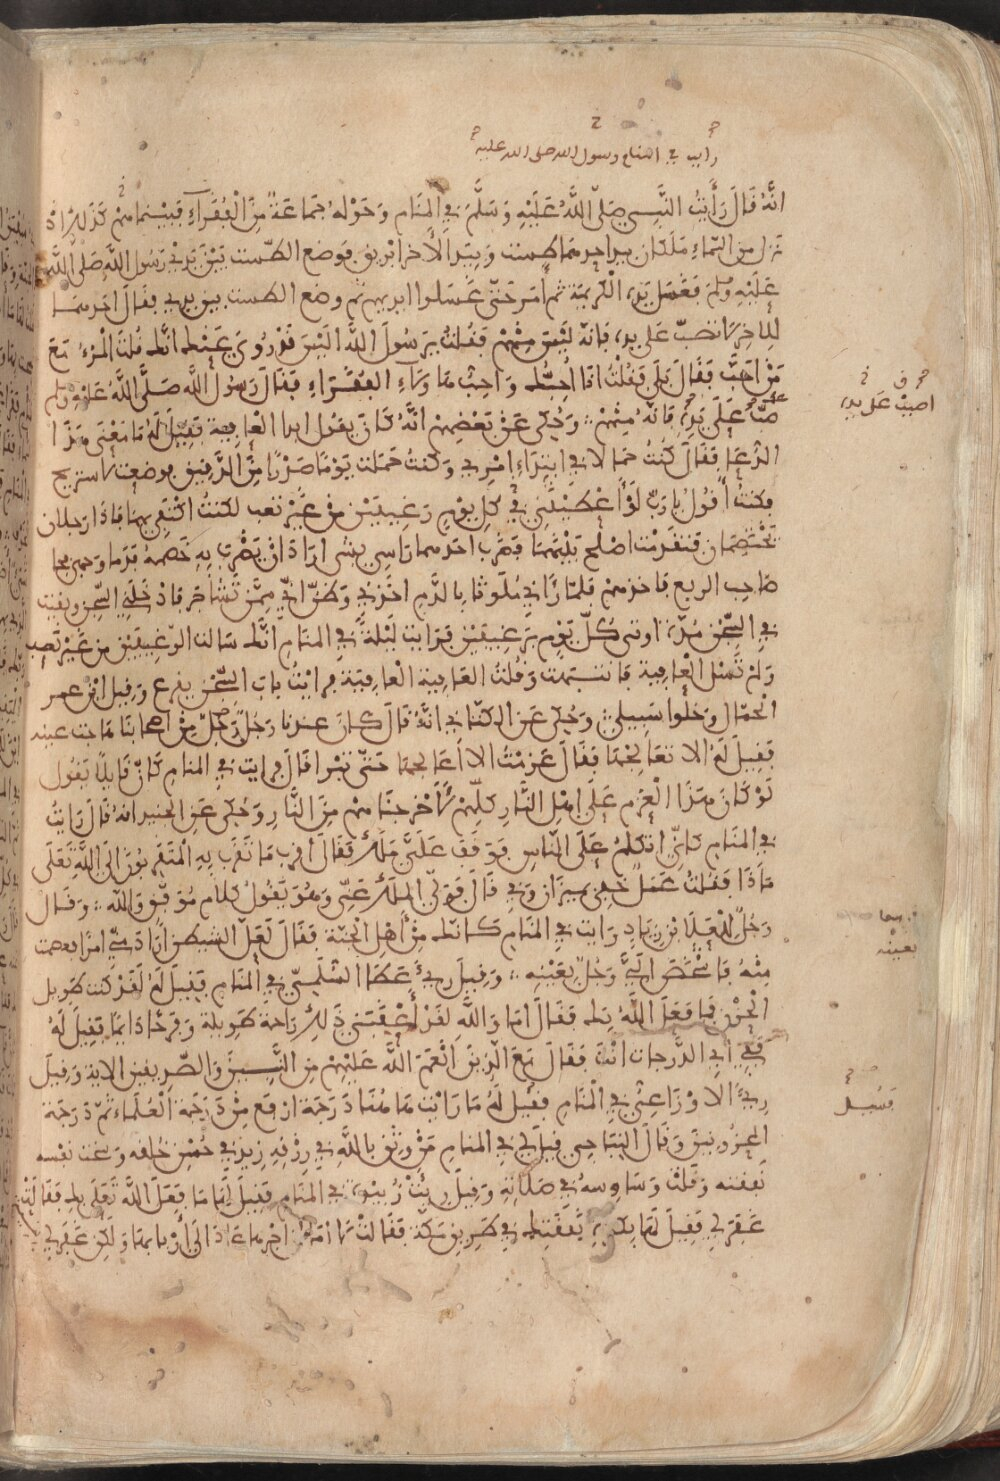 رأيت في المنام رسول الله صلى الله عليه
انَّهُ قَالَ رَأَيْتُ النَّبِي صَلَّى اللَّهُ عَلَيْهِ وَسَلَّمَ فِي المنَامِ وَحَوْلهُ جمَاعَةٌ مِنَ الْفُقَرَآءِ فَبَيْنَمَا هُمْ كَذَلِكَ اذْ
نزل من السّماءِ مَلَكَان بيد احدهما طست وَبيَدِ الْآخر ابْريق فوضع الطّست بَيْنَ يَدَيْ رَسُول اللَّه صَلى اللَّه
عَلَيْهِ وَسلم فَغَسَل يَدَه الْكَريمَة ثم أمَر حَتّى غَسَلوا ايديهم ثم وضع الطست بين يدي فقالَ احدهما
لِلاخر لا تصبّ على يده فانهُ ليْسَ مِنْهُمْ فَقُلتُ يَرَسُولَ اللَّه الَيْسَ قَدْ رُوي عَنْك انَّك قُلتَ الْمَرْءُ مَعَ
مَنْ احَبَّ فقَالَ بَلَى فَقُلْتُ انَا اُحِبُّكَ وَاحِبُّ هَاوُلآءِ الْفُقَرَاءِ فَقَالَ رَسُولُ اللَّه صَلَّى اللَّهُ عَلَيْهِ وسلم
صُبَّ عَلَى يَدِهِ فَانهُ مِنْهُمْ وَحُكي عَنْ بَعْضِهِمْ انَّهُ كَانَ يَقُول ابدا الْعَافِيةَ فَقِيلَ لَهُ مَا مَعْنَى هَذَا
الدُّعَا فَقَالَ كُنتُ حَمالا في ابْتِدَاءِ امْرِي وَكنتُ حَمَلت يَوْمًا صَدْرًا مِنَ الدَّقِيقِ فوضعته لاستريح
فكنتُ أقُولُ يا رَبّ لَوْ أعْطَيْتَني فِي كل يَوْمٍ رَغيفَيْنِ منْ غَيْر تعب لكنتُ اكْتَفي بهما فاذا رجلان
يَخْتَصِمَان فتقدَّمْت اصْلح بَيْنَهمَا فضرَب احَدهما رَاسي بشي ارَادَ انْ يَضْربَ بهِ خَصمهُ فدما وجهي فجا
صَاحب الربع فاخذهمْ فلمّا رَاني مُلَوَّثًا بالدَّمِ اخَذني وَظنّ انّي ممّن تَشَاجَر فادْخَلَني السّجن وبقيت
في السِّجْن مُدّة اوتى كُلّ يَوْم برَغيفَيْن فرايت لَيْلة في المنام انَّك سالت الرّغيفَيْن من غَيْر نصب
وَلمْ تسئل الْعَافية فانتبَهت وَقُلتُ العَافية الْعَافيَة فرايْتُ باب السِّجْن يقرع وَقيل ايْن عمر
الْحمّال وَخلوا سَبيلي وَحُكي عَن الكتّاني انَّهُ قَالَ كانَ عندنا رَجُلٌ مِنْ اصحَابنَا هَاجت عينه
فَقِيلَ لهُ الا تعَالجهَا فقَالَ عَزَمْتُ الا أعَالجهَا حَتّى تبْرا قالَ فرايت في المنام كانّ قايلًا يَقُول
لَوْ كَانَ هَذَا الْعَزم عَلَى اهْل النَّار كلّهمْ لأخْرجنَاهمْ مِنَ النَّارِ وَحُكي عَن الجنيد انهُ قَالَ رَايْتُ
في المنام كانّي اتكلمُ عَلَى النّاس فوَقفَ عَلَيَّ مَلَكٌ فقَالَ أقربُ مَا تَقَرَّبَ بهِ الْمُتَقَرِّبُونَ إلَى اللَّهِ تَعَلَى
مَاذَا فقُلتُ عَمَلٌ خَفِيّ بميزان وَفي قَالَ فَوَلّى الملَكُ عَنّي وَهُوَ يَقُولُ كلام مُوَفّق وَاللّه وَقال
رَجُلٌ للْعَلَاء بْن زيَاد رَايت في المنَامِ كَانَّك مِنْ أهْل الْجنّة فقالَ لَعَلّ الشيطن ارَادَ مني امرًا فعصمت
مِنْهُ فاشْخَصَ الَيَّ رَجُلًا يعينه وَقيلَ رِيءَ عَطَا السّلَمِيّ في المنَام فقيلَ لَهُ لَقَدْ كنت طَويل
الْحُزْن فما فَعَلَ اللَّهُ بك فَقَالَ امَا وَاللَّهِ لَقدْ أعْقَبَني ذَلِكَ رَاحة طَويلة وَفَرحًا دَايمًا فقيلَ لَهُ
فَفِي أي الدَّرجات انْتَ فقَالَ مَعَ الّذِينَ انْعَمَ اللَّه عَلَيْهِمْ مِنَ النَّبِيينَ وَالصِّديقين الاية وَقيل
رِيءَ الاوْزَاعِيّ في الْمنَام فَقيل لَهُ مَا رَايْتَ هَاهُنَا دَرَجَة ارْفع مِنْ دَرَجَة الْعُلَماء ثمّ دَرَجَة
المحزونين وَقَالَ النّبَاجي قيلَ لي في المنام مَنْ وثق باللَّهِ في رِزْقهِ زيدَ في حُسْن خُلقه وَسَخت نفْسه
نَفقته وَقَلّتْ وَسَاوِسهُ في صَلاتهِ وَقيل رِيئَتْ زُبيْدة في المنام فقيلَ لها مَا فعَلَ اللَّه تَعَلى بك فَقَالَتْ
غَفَرَ لي فَقيلَ لَهَا بكثرة نَفَقَتِك في طَريق مَكّة فقَالَتْ لا امّا انّ اجْرهَا عَادَ الَى أرْبابها وَلكن غَفَر لي
اصبّ على يده
بعينه
فقيل